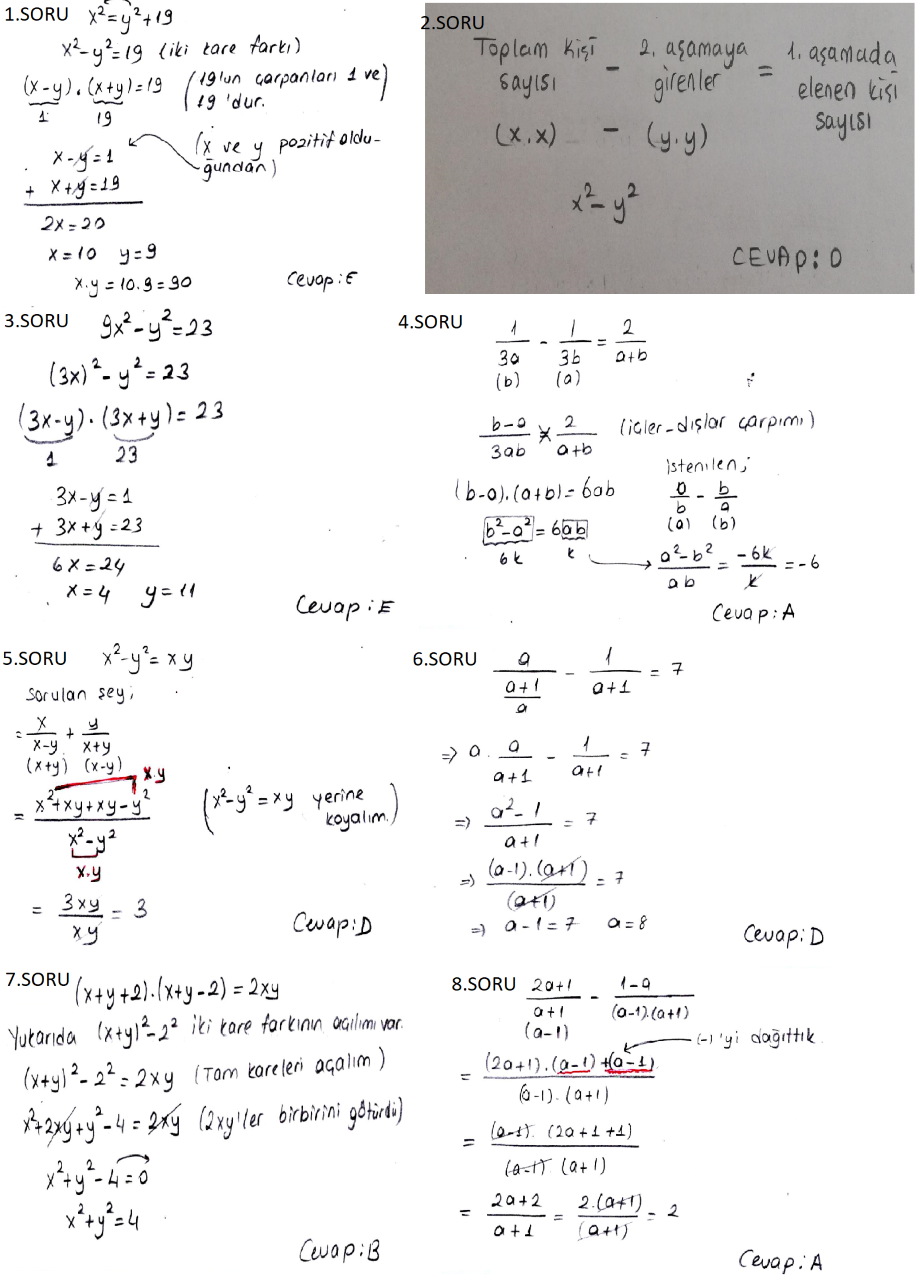 1.SORU x²=y²+19
x²-y²=19 (iki kare farkı)
(x-y).(x+y)=19 (19'un çarpanları 1 ve
1 19 19'dur.)
x-y=1 (x ve y pozitif oldu-
+ x+y=19 ğundan)
2x=20
x=10 y=9
x.y=10.9=90 Cevap:E
2.SORU
Toplam kişi sayısı - 2. aşamaya girenler = 1. aşamada elenen kişi sayısı
(x.x) - (y.y)
x²-y²
CEVAP: D
3.SORU 9x²-y²=23
(3x)²-y²=23
(3x-y).(3x+y)=23
1 23
3x-y=1
+ 3x+y=23
6x=24
x=4 y=11
Cevap:E
4.SORU
1/3a - 1/3b = 2/a+b
(b) (a)
b-a/3ab = 2/a+b (içler-dışlar çarpımı)
(b-a).(a+b)=6ab
b²-a²=6ab
6k k
istenilen;
a/b - b/a
(a) (b)
a²-b²/ab = -6k/k = -6
Cevap:A
5.SORU x²-y²=xy
Sorulan şey;
= x/x-y + y/x+y
(x+y) (x-y)
x.y
= x²+xy+xy-y²/x²-y² (x²-y²=xy yerine
koyalım.)
x.y
= 3xy/xy = 3
Cevap:D
6.SORU a/(a+1/a) - 1/a+1 = 7
⇒ a.a/a+1 - 1/a+1 = 7
⇒ a²-1/a+1 = 7
⇒ (a-1).(a+1)/(a+1) = 7
⇒ a-1=7 a=8
Cevap:D
7.SORU (x+y+2).(x+y-2)=2xy
Yukarıda (x+y)²-2² iki kare farkının açılımı var.
(x+y)²-2²=2xy (Tam kareleri açalım)
x²+2xy+y²-4=2xy (2xy'ler birbirini götürdü)
x²+y²-4=0
x²+y²=4
Cevap:B
8.SORU 2a+1/a+1 - 1-a/(a-1).(a+1)
(a-1)
(-1'yi dağıttık.
= (2a+1).(a-1)+(a-1)/(a-1).(a+1)
= (a-1).(2a+1+1)/(a-1).(a+1)
= 2a+2/a+1 = 2.(a+1)/(a+1) = 2
Cevap:A